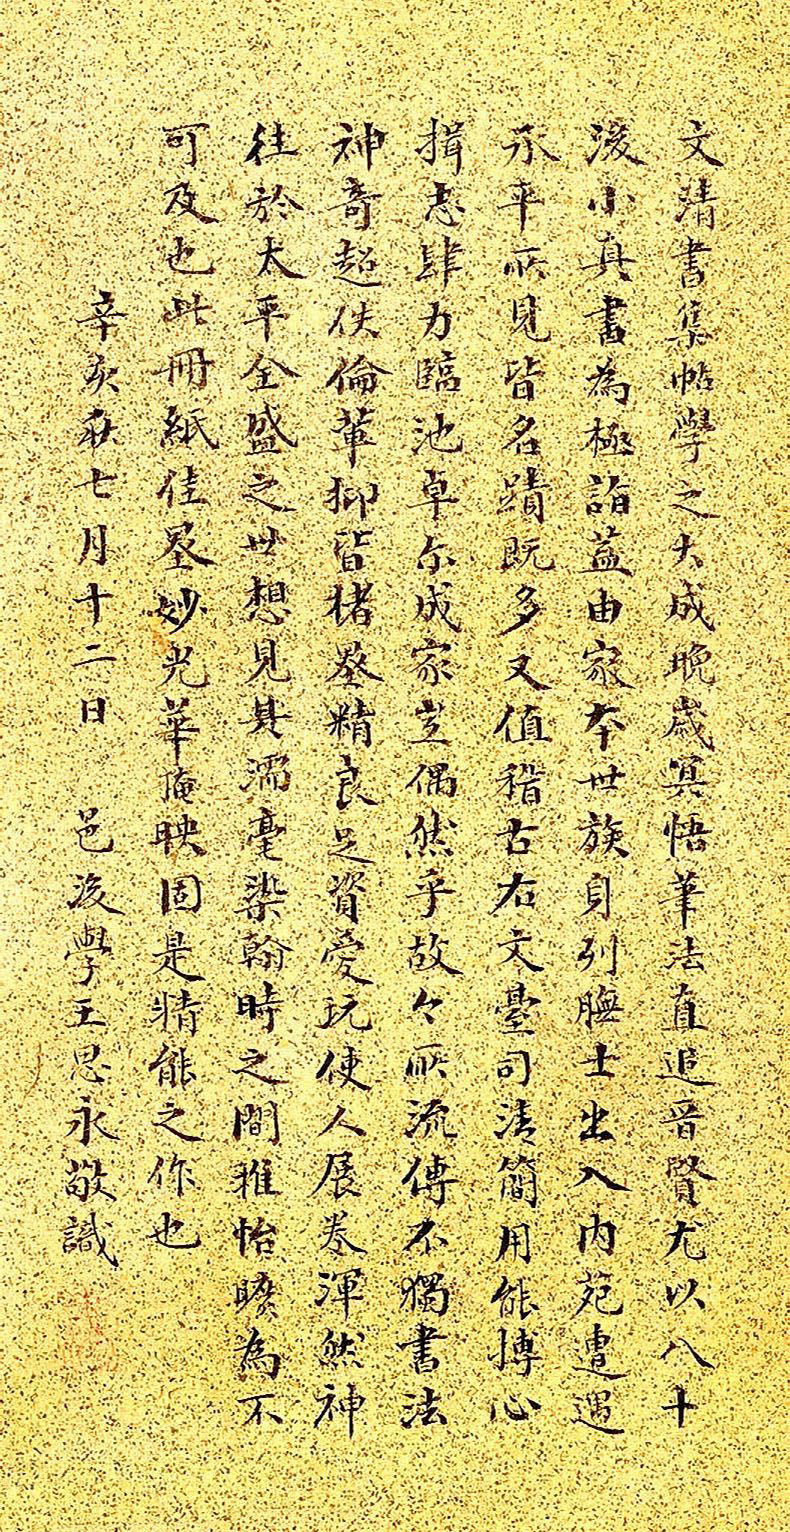 文清書集帖學之大成晚歲冥悟筆法直追晉賢尤以八十
後小真書為極詣蓋由家本世族身列膴士出入內苑遭遇
承平所見皆名蹟既多又值稽古右文臺司清簡用能摶心
揖志肆力臨池卓尔成家豈偶然乎故今所流傳不獨書法
神奇超佚倫輩抑皆楮墨精良足資愛玩使人展卷渾然神
往於太平全盛之世想見其濡毫染翰時之間雅怡曠為不
可及也此冊紙佳墨妙光華掩映固是精能之作也
辛亥秋七月十二日 邑後學王思永敬識